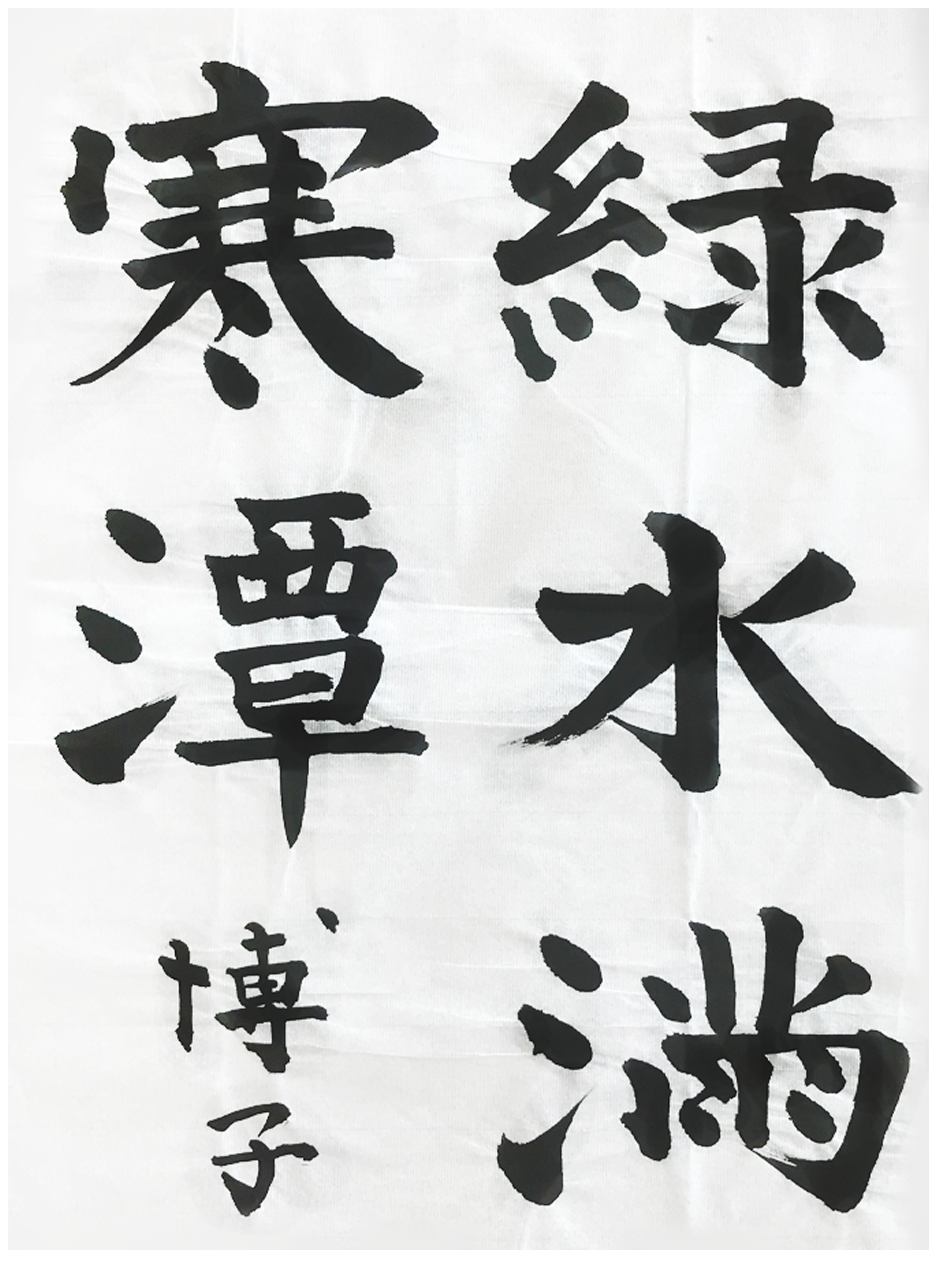 緑水滿
寒潭
博子